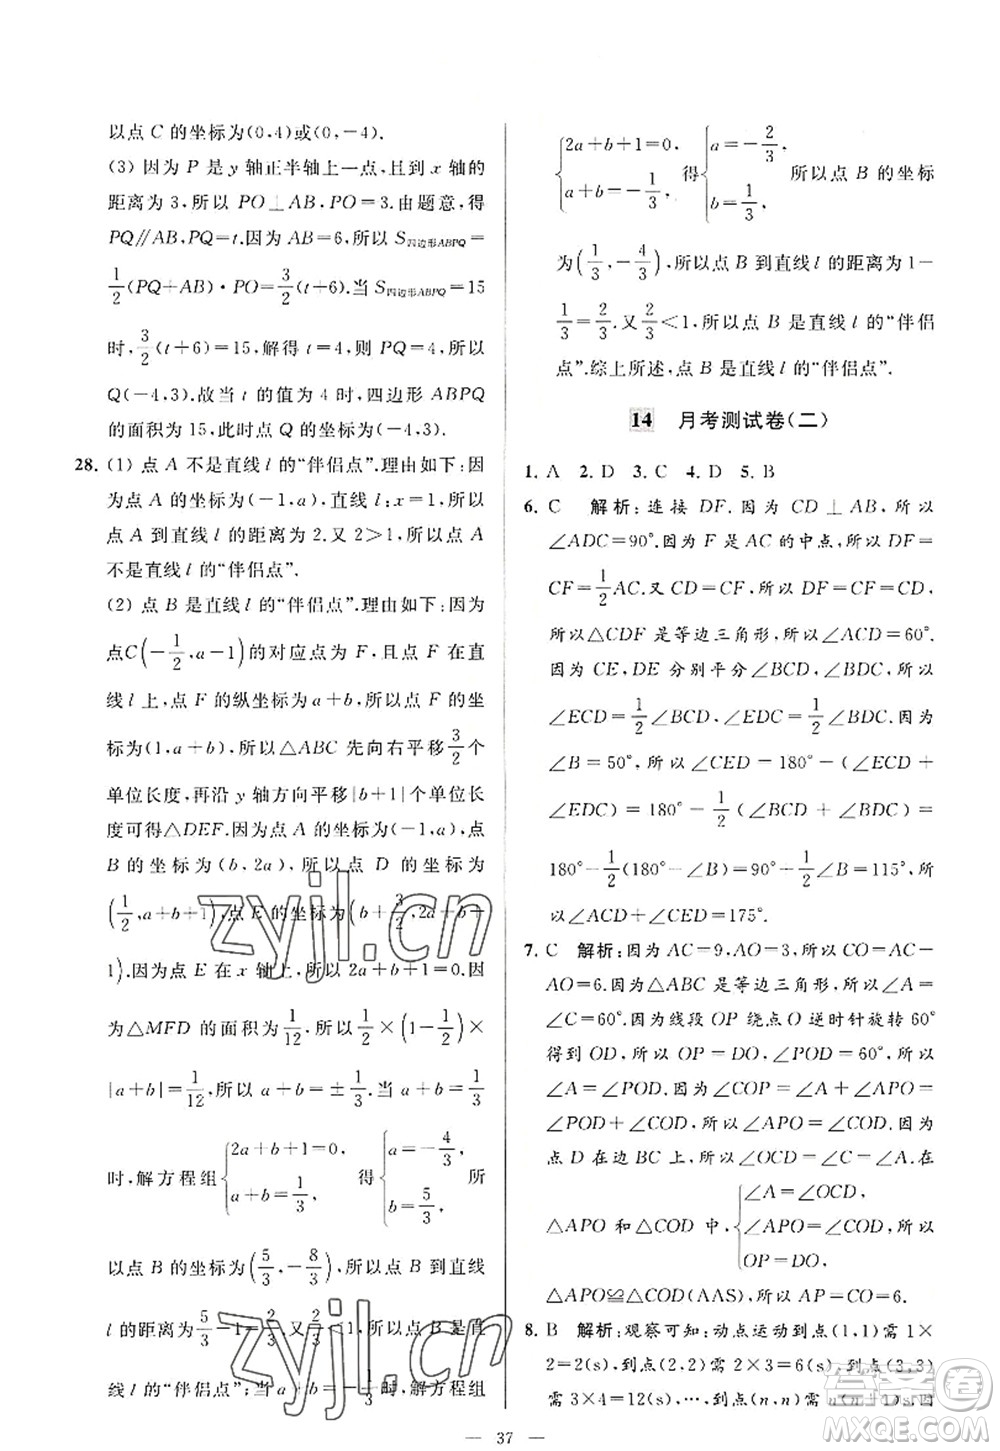 以点 C 的坐标为(0,4)或(0,-4).
(3) 因为 P 是 y 轴正半轴上一点,且到 x 轴的
距离为 3,所以 PO⊥AB,PO=3.由题意,得
PQ∥AB,PQ=t.因为 AB=6,所以 S四边形ABPQ=
1/2(PQ+AB)·PO=3/2(t+6).当 S四边形ABPQ=15
时,3/2(t+6)=15,解得 t=4,则 PQ=4,所以
Q(-4,3).故当 t 的值为 4 时,四边形 ABPQ
的面积为 15,此时点 Q 的坐标为(-4,3).
28. (1) 点 A 不是直线 l 的“伴侣点”.理由如下:因
为点 A 的坐标为(-1,a),直线 l:x=1,所以
点 A 到直线 l 的距离为 2.又 2>1,所以点 A
不是直线 l 的“伴侣点”.
(2) 点 B 是直线 l 的“伴侣点”.理由如下:因为
点C(-1/2,a-1)的对应点为 F,且点 F 在直
线 l 上,点 F 的纵坐标为 a+b,所以点 F 的坐
标为(1,a+b),所以△ABC 先向右平移3/2个
单位长度,再沿 y 轴方向平移|b+1|个单位长
度可得△DEF.因为点 A 的坐标为(-1,a),点
B 的坐标为(b,2a),所以点 D 的坐标为
(1/2,a+b+1),点 E 的坐标为(b+3/2,2a+b+
1).因为点 E 在 x 轴上,所以 2a+b+1=0.因
为△MFD 的面积为1/12,所以1/2×(1-1/2)×
|a+b|=1/12,所以 a+b=±1/3.当 a+b=1/3
时,解方程组{2a+b+1=0, a+b=1/3, 得{a=-4/3, b=5/3, 所
以点 B 的坐标为(5/3,-8/3),所以点 B 到直线
l 的距离为5/3-1=2/3.又2/3<1,所以点 B 是直
线 l 的“伴侣点”;当 a+b=-1/3时,解方程组
{2a+b+1=0, a+b=-1/3, 得{a=-2/3, b=1/3, 所以点 B 的坐标
为(1/3,-4/3),所以点 B 到直线 l 的距离为 1-
1/3=2/3.又2/3<1,所以点 B 是直线 l 的“伴侣
点”.综上所述,点 B 是直线 l 的“伴侣点”.
14 月考测试卷(二)
1. A 2. D 3. C 4. D 5. B
6. C 解析:连接 DF.因为 CD⊥AB,所以
∠ADC=90°.因为 F 是 AC 的中点,所以 DF=
CF=1/2AC.又 CD=CF,所以 CD=DF=CF,
所以△CDF 是等边三角形,所以∠ACD=60°.
因为 CE,DE 分别平分∠BCD,∠BDC,所以
∠ECD=1/2∠BCD,∠EDC=1/2∠BDC.因为
∠B=50°,所以∠CED=180°-(∠ECD+
∠EDC)=180°-1/2(∠BCD+∠BDC)=
180°-1/2(180°-∠B)=90°+1/2∠B=115°,所以
∠ACD+∠CED=175°.
7. C 解析:因为 AC=9,AO=3,所以 CO=AC-
AO=6.因为△ABC 是等边三角形,所以∠A=
∠C=60°.因为线段 OP 绕点 O 逆时针旋转 60°
得到 OD,所以 OP=DO,∠POD=60°,所以
∠A=∠POD.因为∠COP=∠A+∠APO=
∠POD+∠COD,所以∠APO=∠COD.因为
点 D 在边 BC 上,所以∠OCD=60°=∠A.在
△APO 和△COD 中,{∠A=∠OCD, ∠APO=∠COD, OP=DO, 所以
△APO≌△COD(AAS),所以 AP=CO=6.
8. B 解析:观察可知:动点运动到点(1,1)需 1×
2=2(s),到点(2,2)需 2×3=6(s),到点(3,3)
需 3×4=12(s),…,到点(n,n)需 n(n+1)s.因
— 37 —
zyjl.cn
zyjl.cn
答案圈
MXQE.COM